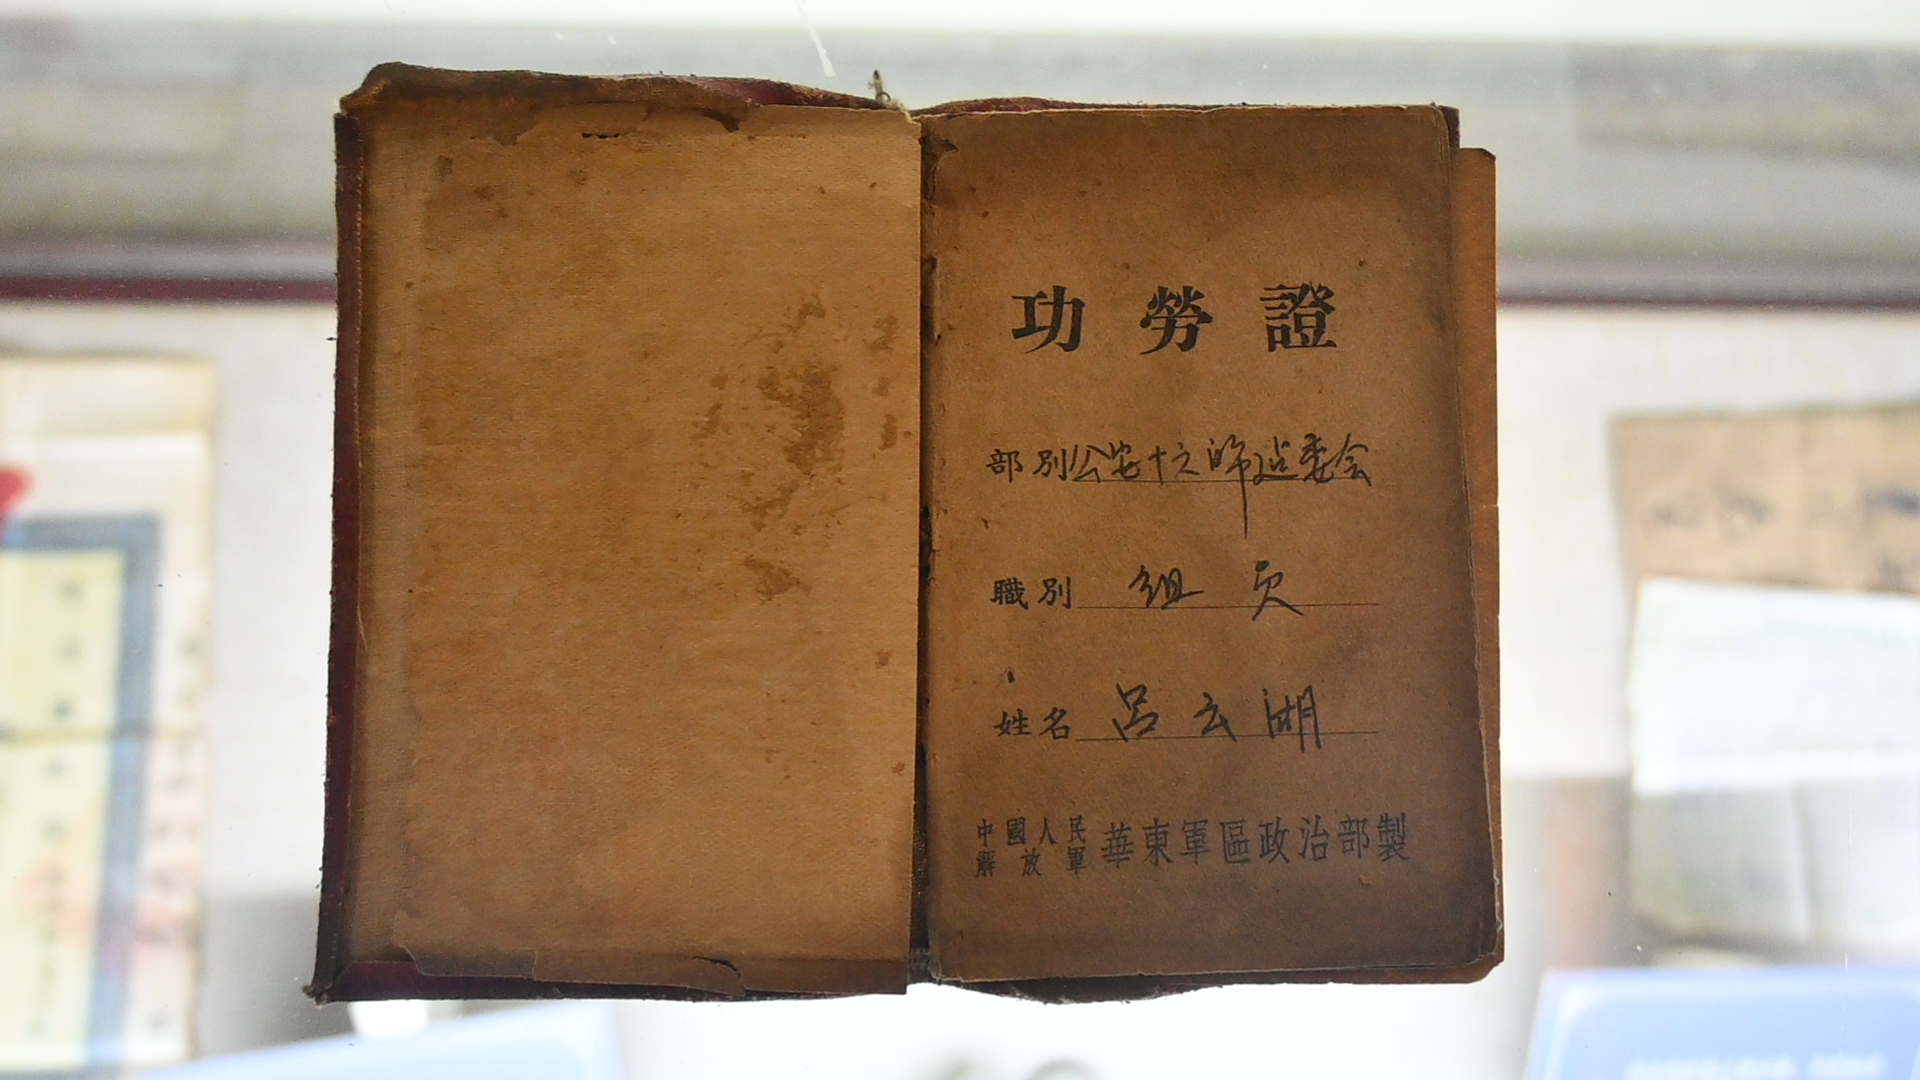 功勞證
部別 公安十六师运委会
職別 组员
姓名 呂云湖
中國人民解放軍 華東軍區政治部製